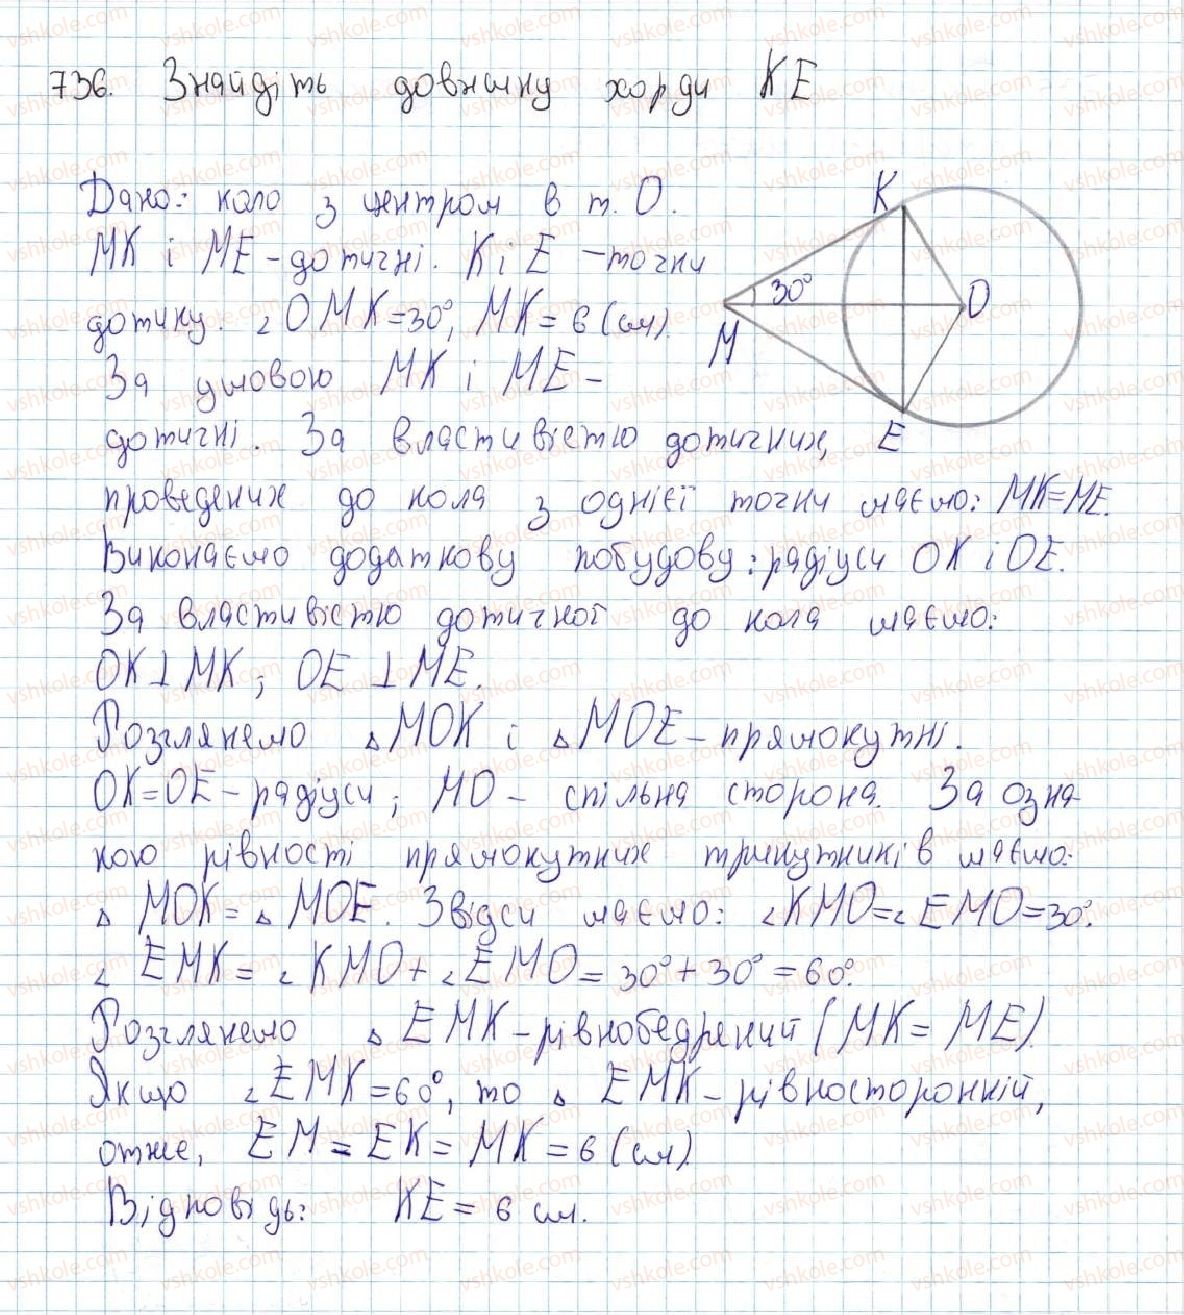 736. Знайдіть довжину хорди KE
Дано: коло з центром в т. O.
MK і ME – дотичні. K і E – точки
дотику. ∠OMK=30°, MK=6 (см).
За умовою MK і ME –
дотичні. За властивістю дотичних,
проведених до кола з однієї точки маємо: MK=ME.
Виконаємо додаткову побудову: радіуси OK і OE.
За властивістю дотичної до кола маємо:
OK⊥MK; OE⊥ME.
Розглянемо △MOK і △MOE – прямокутні.
OK=OE – радіуси; MO – спільна сторона. За озна-
кою рівності прямокутних трикутників маємо:
△MOK=△MOE. Звідси маємо: ∠KMO=∠EMO=30°.
∠EMK=∠KMO+∠EMO=30°+30°=60°.
Розглянемо △EMK – рівнобедрений (MK=ME).
Якщо ∠EMK=60°, то △EMK – рівносторонній,
отже, EM=EK=MK=6 (см).
Відповідь: KE=6 см.
K
30°
O
M
E
vshkole.com